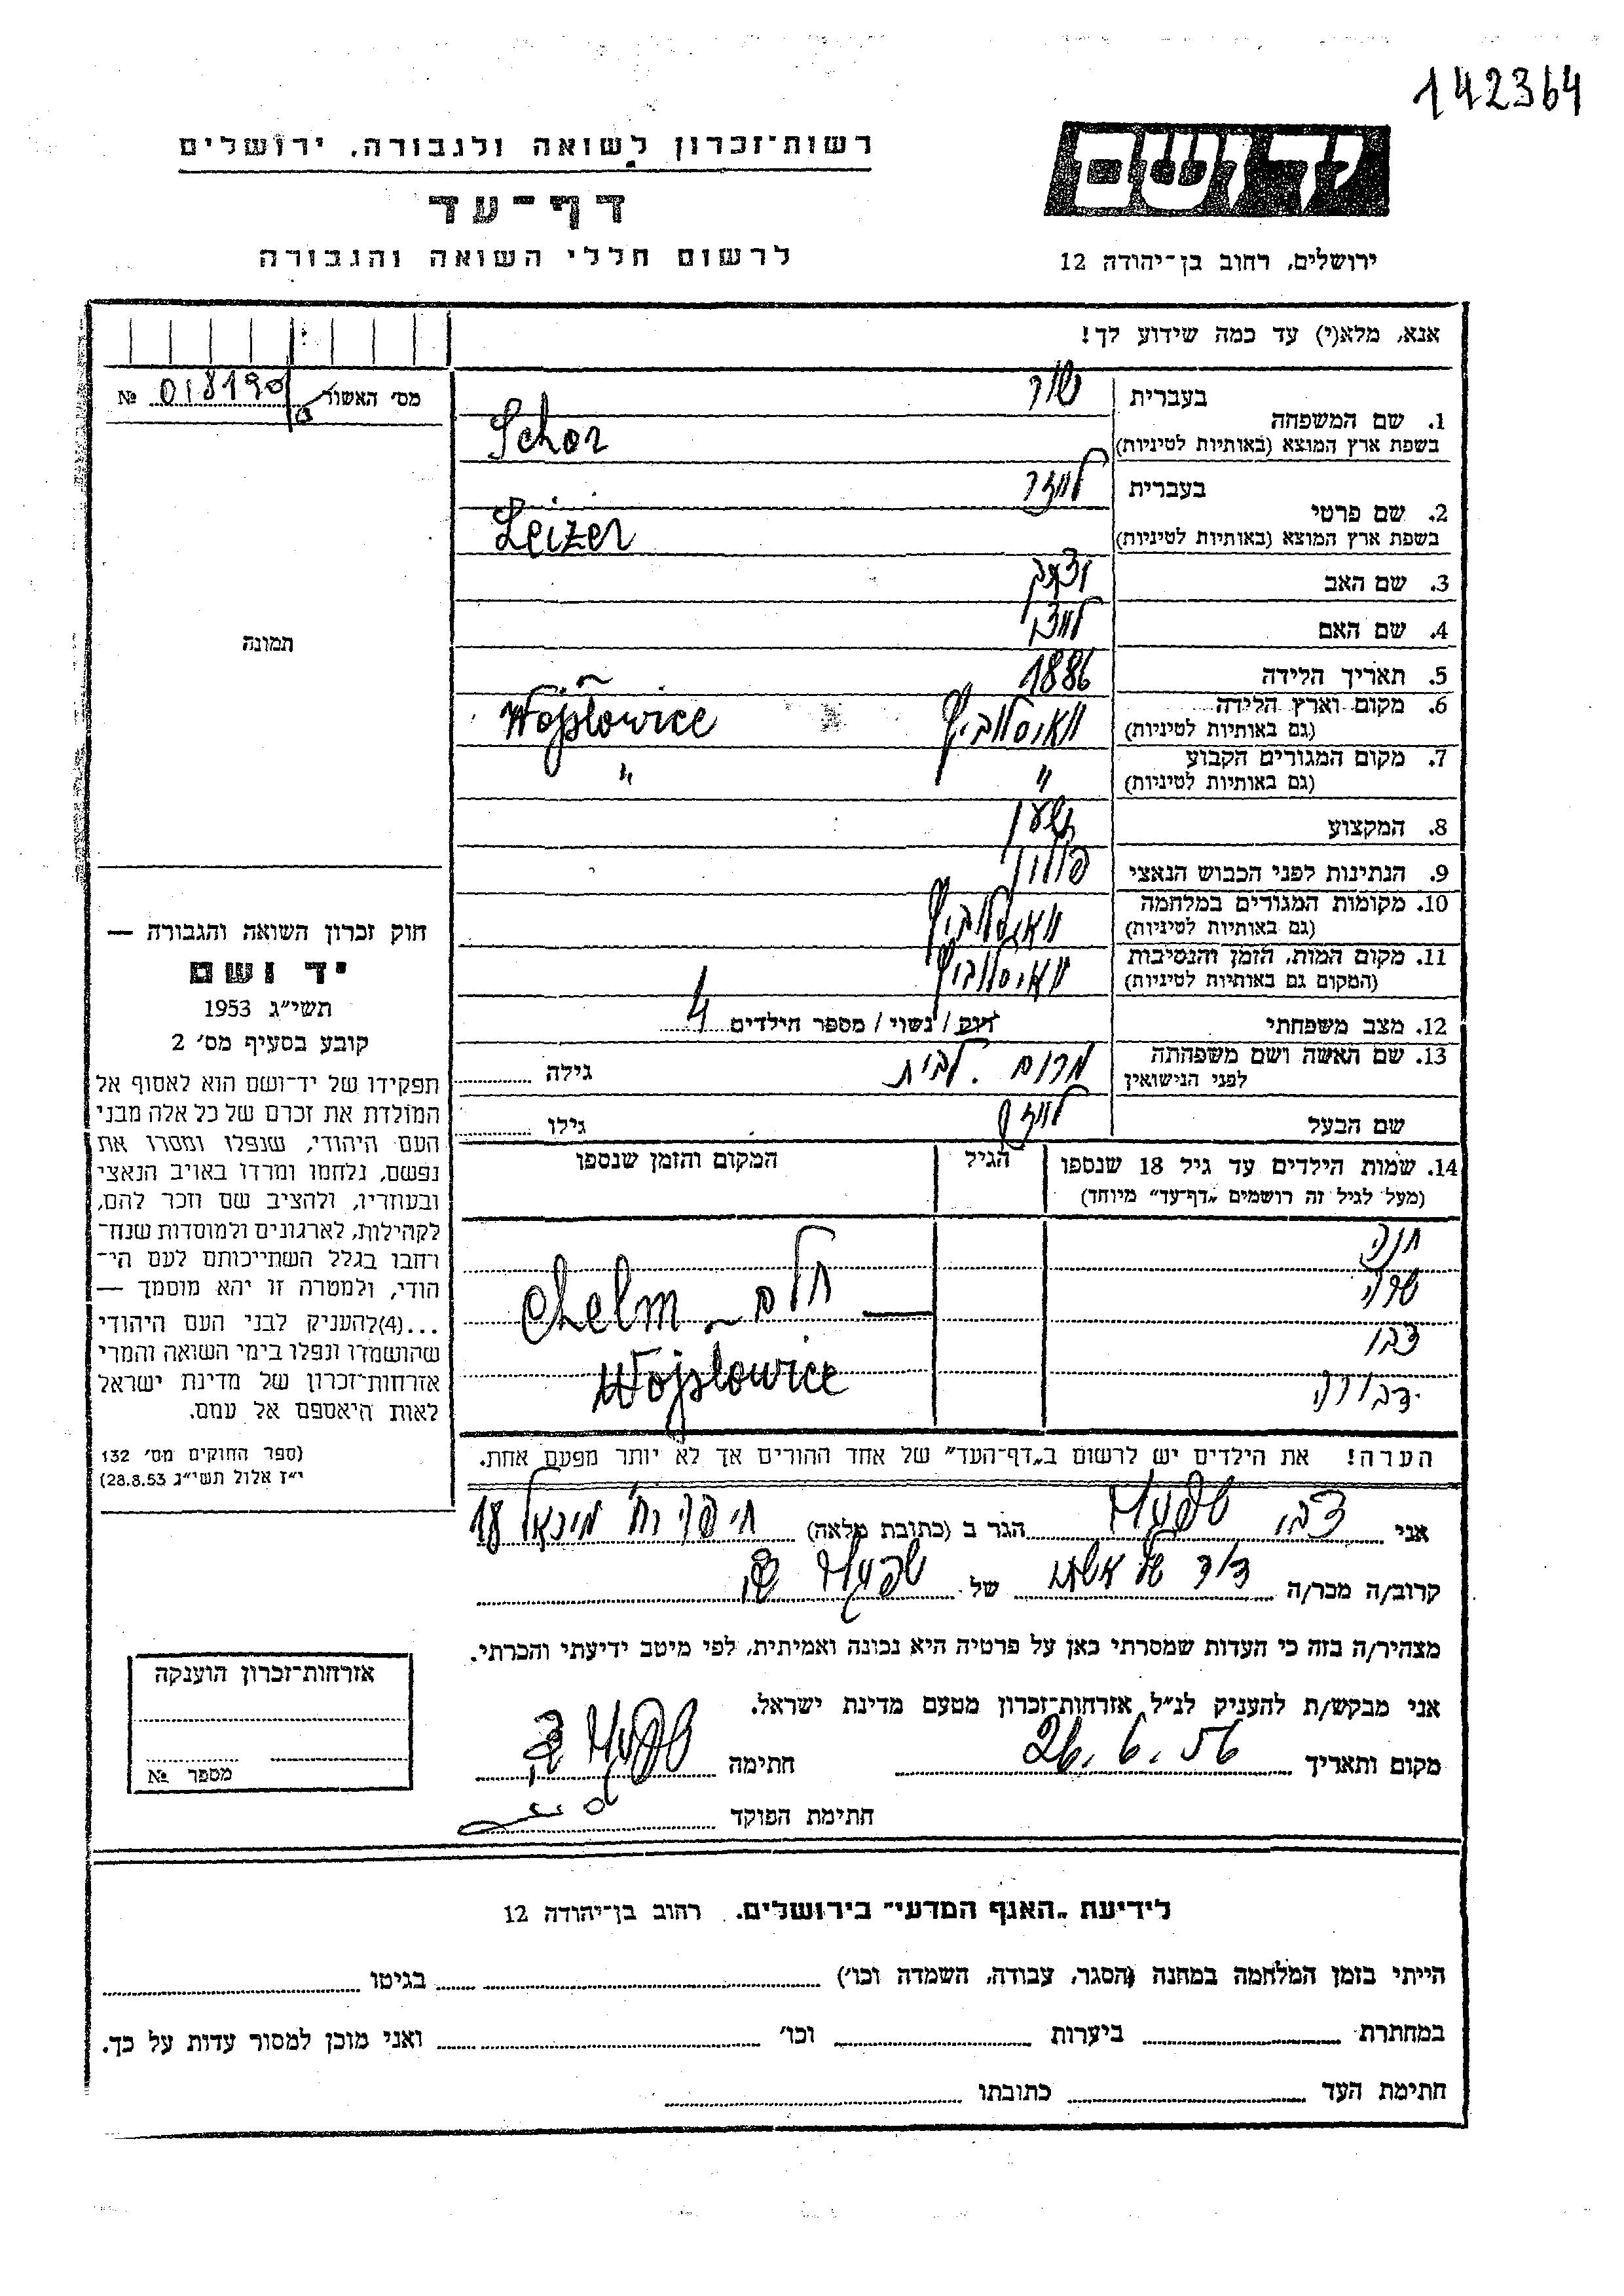 142364
יד ושם
ירושלים, רחוב בן־יהודה 12
רשות־זכרון לשואה ולגבורה, ירושלים
דף־עד
לרשום חללי השואה והגבורה
אנא, מלא(י) עד כמה שידוע לך!
מס׳ האשור № 018190
1. שם המשפחה
בעברית שור
בשפת ארץ המוצא (באותיות לטיניות) Schor
2. שם פרטי
בעברית לייזר
בשפת ארץ המוצא (באותיות לטיניות) Leizer
3. שם האב
4. שם האם
5. תאריך הלידה 1886
6. מקום וארץ הלידה
(גם באותיות לטיניות) וואיסלוביץ Wojsłowice
7. מקום המגורים הקבוע
(גם באותיות לטיניות) " "
8. המקצוע
9. הנתינות לפני הכבוש הנאצי פולין
10. מקומות המגורים במלחמה
(גם באותיות לטיניות) וואיסלוביץ
11. מקום המות, הזמן והנסיבות
(המקום גם באותיות לטיניות) וואיסלוביץ
12. מצב משפחתי רווק / נשוי / מספר הילדים 4
13. שם האשה ושם משפחתה
לפני הנישואין מרים גילה
שם הבעל גילו
14. שמות הילדים עד גיל 18 שנספו
(מעל לגיל זה רושמים „דף־עד״ מיוחד)
הגיל
המקום והזמן שנספו
חנה
שרה
צבי
דבורה
חלם – Chelm
Wojsłowice
הערה! את הילדים יש לרשום ב„דף־העד״ של אחד ההורים אך לא יותר מפעם אחת.
תמונה
חוק זכרון השואה והגבורה —
יד ושם
תשי״ג 1953
קובע בסעיף מס׳ 2
תפקידו של יד־ושם הוא לאסוף אל
המולדת את זכרם של כל אלה מבני
העם היהודי, שנפלו ומסרו את
נפשם, נלחמו ומרדו באויב הנאצי
ובעוזריו, ולהציב שם וזכר להם,
לקהילות, לארגונים ולמוסדות שנח־
רחבו בגלל השתייכותם לעם הי־
הודי, ולמטרה זו יהא מוסמך —
...(4)להעניק לבני העם היהודי
שהושמדו ונפלו בימי השואה והמרי
אזרחות־זכרון של מדינת ישראל
לאות היאספם אל עמם.
(ספר החוקים מס׳ 132
י״ז אלול תשי״ג 28.8.53)
אני צבי הגר ב (כתובת מלאה) חיפה רח׳ מיכאל 18
קרוב/ה מכר/ה דוד של אשתו של
מצהיר/ה בזה כי העדות שמסרתי כאן על פרטיה היא נכונה ואמיתית, לפי מיטב ידיעתי והכרתי.
אני מבקש/ת להעניק לנ״ל אזרחות־זכרון מטעם מדינת ישראל.
מקום ותאריך 26.6.56 חתימה
חתימת הפוקד
אזרחות־זכרון הוענקה
מספר №
לידיעת „האגף המדעי״ בירושלים, רחוב בן־יהודה 12
הייתי בזמן המלחמה במחנה (הסגר, עבודה, השמדה וכו׳) בגיטו
במחתרת ביערות וכו׳ ואני מוכן למסור עדות על כך.
חתימת העד כתובתו